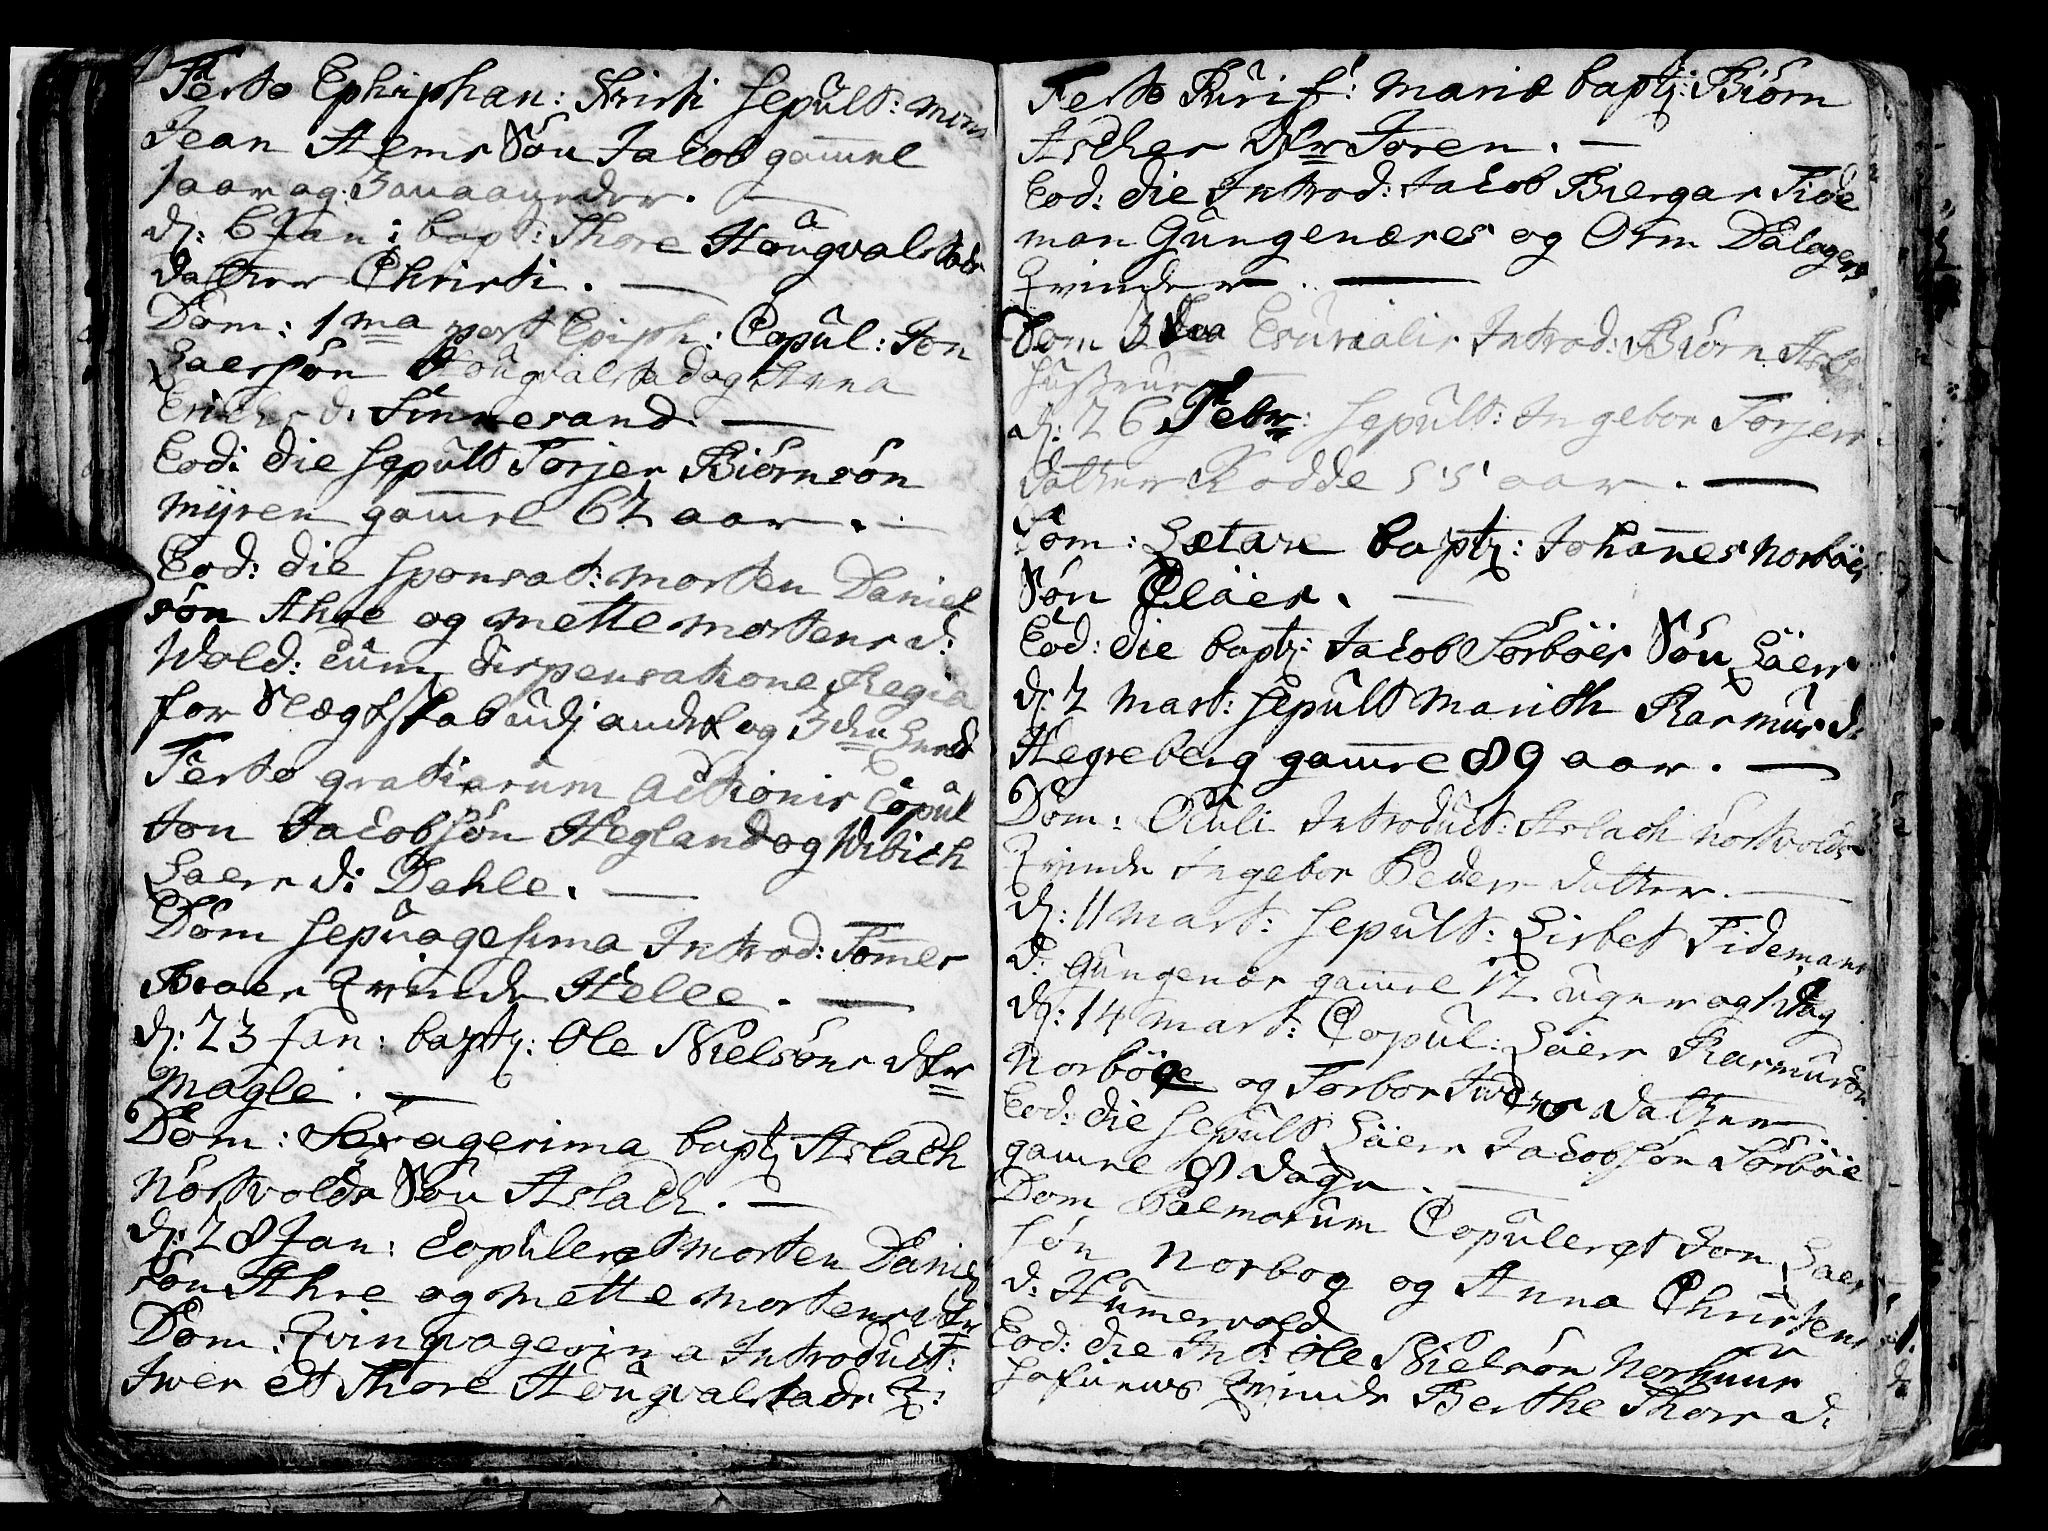 Festo Ephiphan: Kristi sepult: mons
Jean Stems Søn Jacob gamel
1 aar og 3 maaneder.
d: 6 Jan: bapt: Thore Høugvalstads
datter Christi.
Dom: 1ma post Epiph: Copul: Jon
Laersøn Høugvalstad og Anna
Erichs d: Finnesand.
Eod: die sepult Torjer Biørnsøn
myren gamel 62 aar.
Eod: die sponsat: morten Daniel
søn Ahre og mette mortens d:
Wold: cum dispensatione Regia
for Slægtskab udj andet og 3den Leed
Festo gratiarum actionis Copul
Jon Jacobsøn Hegland og Wibich
Laers d: Dahle.
Dom sepuagesima Introd: Tomes
Braer Qvinde Helle.
d: 23 Jan: baptz: Ole Nielsøns dtr
magle.
Dom: Sexagesima baptz Aslach
Nortvolds Søn Aslach.
d: 28 Jan: Copuleret morten Daniel
søn Ahre og mette mortens dtr
Dom: Qvinqvagesima Introduct:
Iver et Thore Høugvalstads Q:
Festo Purif: mariæ baptz: Biørn
Ascher dtr Joren.
Eod: die Introd: Jacob Biergar Tide
man Gungenæres og Orm Dalagers
Qvinder.
Dom Esurialis Introd: Biørn
hustrue
d: 26 Febr: sepult: Ingebor Torjers
datter Rodde 55 aar.
Dom: Lætare baptz: Johannes Norbøes
Søn Claes.
Eod: die baptz: Jacob Sørbøes Søn Laers
d: 2 Mart: sepult Marith Rasmus d:
Hegreberg gamel 89 aar.
Dom: Oculi Introduct: Aslach Nortvolds
Qvinde Ingebor Peders datter.
d: 11 Mart: sepult: Lisbet Tidemans
d: Gungenær gamel 12 uger og 1 dag
d: 14 Mart: Copul: Laers Rasmusøn
Norbøe og Torbor datter
Eod: die sepult Laers Jacobsøn Sørbøe
gamel 8 dage.
Dom Palmarum Copuleret Jon Laers
søn Norboe og Anna Christens
d: Hummervold
Eod: die Int: Ole Nielsøn
Qvinde Berthe Thors d: